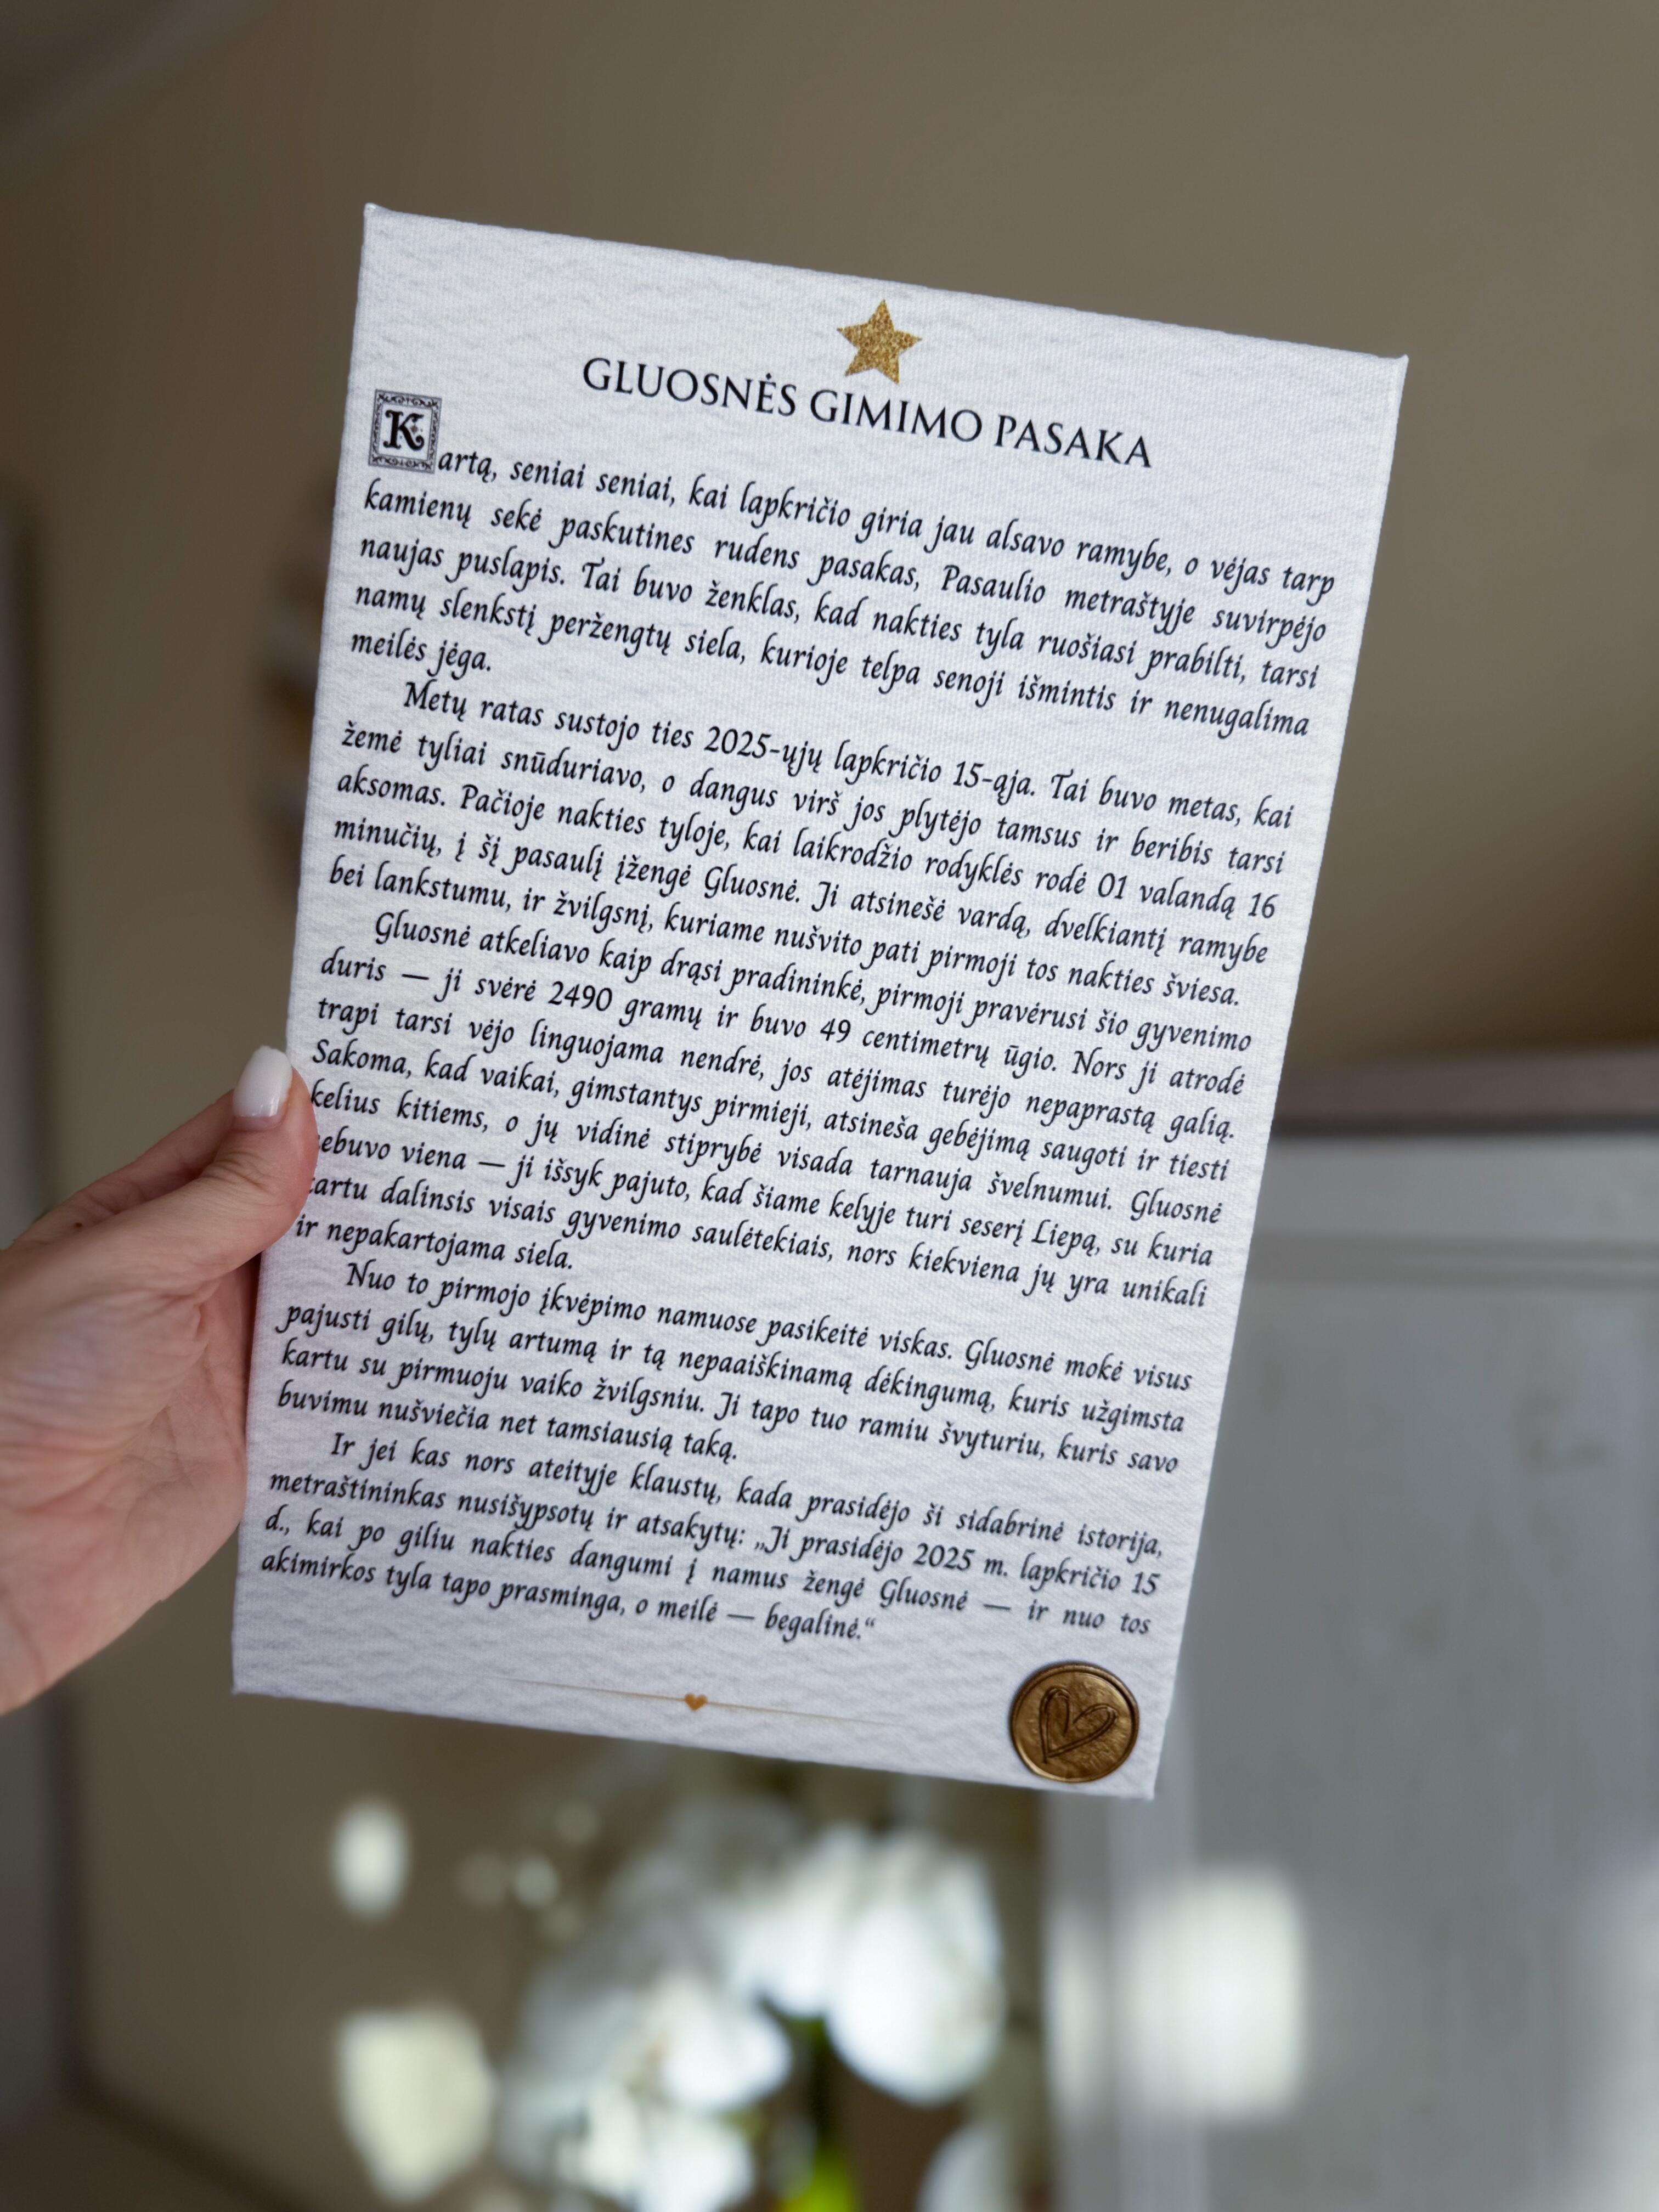 GLUOSNĖS GIMIMO PASAKA
Kartą, seniai seniai, kai lapkričio giria jau alsavo ramybe, o vėjas tarp
kamienų sekė paskutines rudens pasakas, Pasaulio metraštyje suvirpėjo
naujas puslapis. Tai buvo ženklas, kad nakties tyla ruošiasi prabilti, tarsi
namų slenkstį peržengtų siela, kurioje telpa senoji išmintis ir nenugalima
meilės jėga.
Metų ratas sustojo ties 2025-ųjų lapkričio 15-ąja. Tai buvo metas, kai
žemė tyliai snūduriavo, o dangus virš jos plytėjo tamsus ir beribis tarsi
aksomas. Pačioje nakties tyloje, kai laikrodžio rodyklės rodė 01 valandą 16
minučių, į šį pasaulį įžengė Gluosnė. Ji atsinešė vardą, dvelkiantį ramybe
bei lankstumu, ir žvilgsnį, kuriame nušvito pati pirmoji tos nakties šviesa.
Gluosnė atkeliavo kaip drąsi pradininkė, pirmoji pravėrusi šio gyvenimo
duris — ji svėrė 2490 gramų ir buvo 49 centimetrų ūgio. Nors ji atrodė
trapi tarsi vėjo linguojama nendrė, jos atėjimas turėjo nepaprastą galią.
Sakoma, kad vaikai, gimstantys pirmieji, atsineša gebėjimą saugoti ir tiesti
kelius kitiems, o jų vidinė stiprybė visada tarnauja švelnumui. Gluosnė
ebuvo viena — ji išsyk pajuto, kad šiame kelyje turi seserį Liepą, su kuria
kartu dalinsis visais gyvenimo saulėtekiais, nors kiekviena jų yra unikali
ir nepakartojama siela.
Nuo to pirmojo įkvėpimo namuose pasikeitė viskas. Gluosnė mokė visus
pajusti gilų, tylų artumą ir tą nepaaiškinamą dėkingumą, kuris užgimsta
kartu su pirmuoju vaiko žvilgsniu. Ji tapo tuo ramiu švyturiu, kuris savo
buvimu nušviečia net tamsiausią taką.
Ir jei kas nors ateityje klaustų, kada prasidėjo ši sidabrinė istorija,
metraštininkas nusišypsotų ir atsakytų: „Ji prasidėjo 2025 m. lapkričio 15
d., kai po giliu nakties dangumi į namus žengė Gluosnė — ir nuo tos
akimirkos tyla tapo prasminga, o meilė — begalinė.“